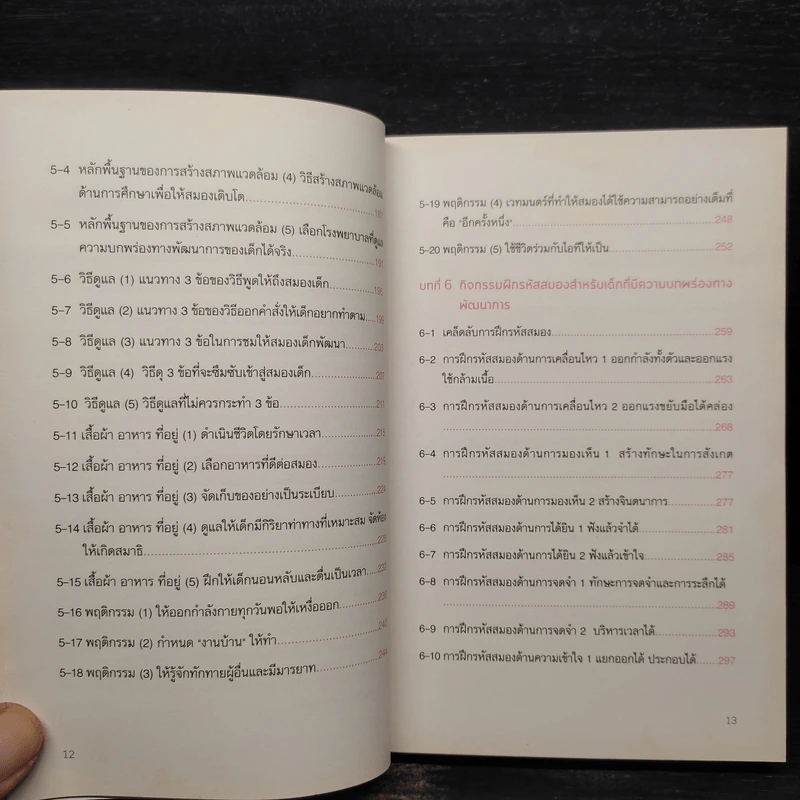 5-4 หลักพื้นฐานของการสร้างสภาพแวดล้อม (4) วิธีสร้างสภาพแวดล้อม
ด้านการศึกษาเพื่อให้สมองเติบโต
5-5 หลักพื้นฐานของการสร้างสภาพแวดล้อม (5) เลือกโรงพยาบาลที่ดูแล
ความบกพร่องทางพัฒนาการของเด็กได้จริง 191
5-6 วิธีดูแล (1) แนวทาง 3 ข้อของวิธีพูดให้ถึงสมองเด็ก 195
5-7 วิธีดูแล (2) แนวทาง 3 ข้อของวิธีออกคำสั่งให้เด็กอยากทำตาม 199
5-8 วิธีดูแล (3) แนวทาง 3 ข้อในการชมให้สมองเด็กพัฒนา 203
5-9 วิธีดูแล (4) วิธีดุ 3 ข้อที่จะซึมซับเข้าสู่สมองเด็ก 207
5-10 วิธีดูแล (5) วิธีดูแลที่ไม่ควรกระทำ 3 ข้อ 211
5-11 เสื้อผ้า อาหาร ที่อยู่ (1) ดำเนินชีวิตโดยรักษาเวลา 215
5-12 เสื้อผ้า อาหาร ที่อยู่ (2) เลือกอาหารที่ดีต่อสมอง 219
5-13 เสื้อผ้า อาหาร ที่อยู่ (3) จัดเก็บของอย่างเป็นระเบียบ 224
5-14 เสื้อผ้า อาหาร ที่อยู่ (4) ดูแลให้เด็กมีกิริยาท่าทางที่เหมาะสม จัดห้อง
ให้เกิดสมาธิ 228
5-15 เสื้อผ้า อาหาร ที่อยู่ (5) ฝึกให้เด็กนอนหลับและตื่นเป็นเวลา 232
5-16 พฤติกรรม (1) ให้ออกกำลังกายทุกวันพอให้เหงื่อออก 236
5-17 พฤติกรรม (2) กำหนด "งานบ้าน" ให้ทำ 240
5-18 พฤติกรรม (3) ให้รู้จักทักทายผู้อื่นและมีมารยาท 244
12
5-19 พฤติกรรม (4) เวทมนตร์ที่ทำให้สมองได้ใช้ความสามารถอย่างเต็มที่
คือ "อีกครั้งหนึ่ง" 248
5-20 พฤติกรรม (5) ใช้ชีวิตร่วมกับไอทีให้เป็น 252
บทที่ 6 กิจกรรมฝึกรหัสสมองสำหรับเด็กที่มีความบกพร่องทาง
พัฒนาการ
6-1 เคล็ดลับการฝึกรหัสสมอง 259
6-2 การฝึกรหัสสมองด้านการเคลื่อนไหว 1 ออกกำลังทั้งตัวและออกแรง
ใช้กล้ามเนื้อ 263
6-3 การฝึกรหัสสมองด้านการเคลื่อนไหว 2 ออกแรงขยับมือได้คล่อง
268
6-4 การฝึกรหัสสมองด้านการมองเห็น 1 สร้างทักษะในการสังเกต
277
6-5 การฝึกรหัสสมองด้านการมองเห็น 2 สร้างจินตนาการ 277
6-6 การฝึกรหัสสมองด้านการได้ยิน 1 ฟังแล้วจำได้ 281
6-7 การฝึกรหัสสมองด้านการได้ยิน 2 ฟังแล้วเข้าใจ 285
6-8 การฝึกรหัสสมองด้านการจดจำ 1 ทักษะการจดจำและการระลึกได้
289
6-9 การฝึกรหัสสมองด้านการจดจำ 2 บริหารเวลาได้ 293
6-10 การฝึกรหัสสมองด้านความเข้าใจ 1 แยกออกได้ ประกอบได้ 297
13